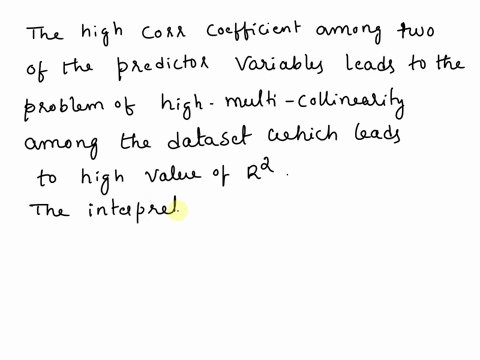 The high Corr Coefficient among two
of the predictor variables leads to the
problem of high-multi-collinearity
among the dataset which leads
to high value of R².
The interpret